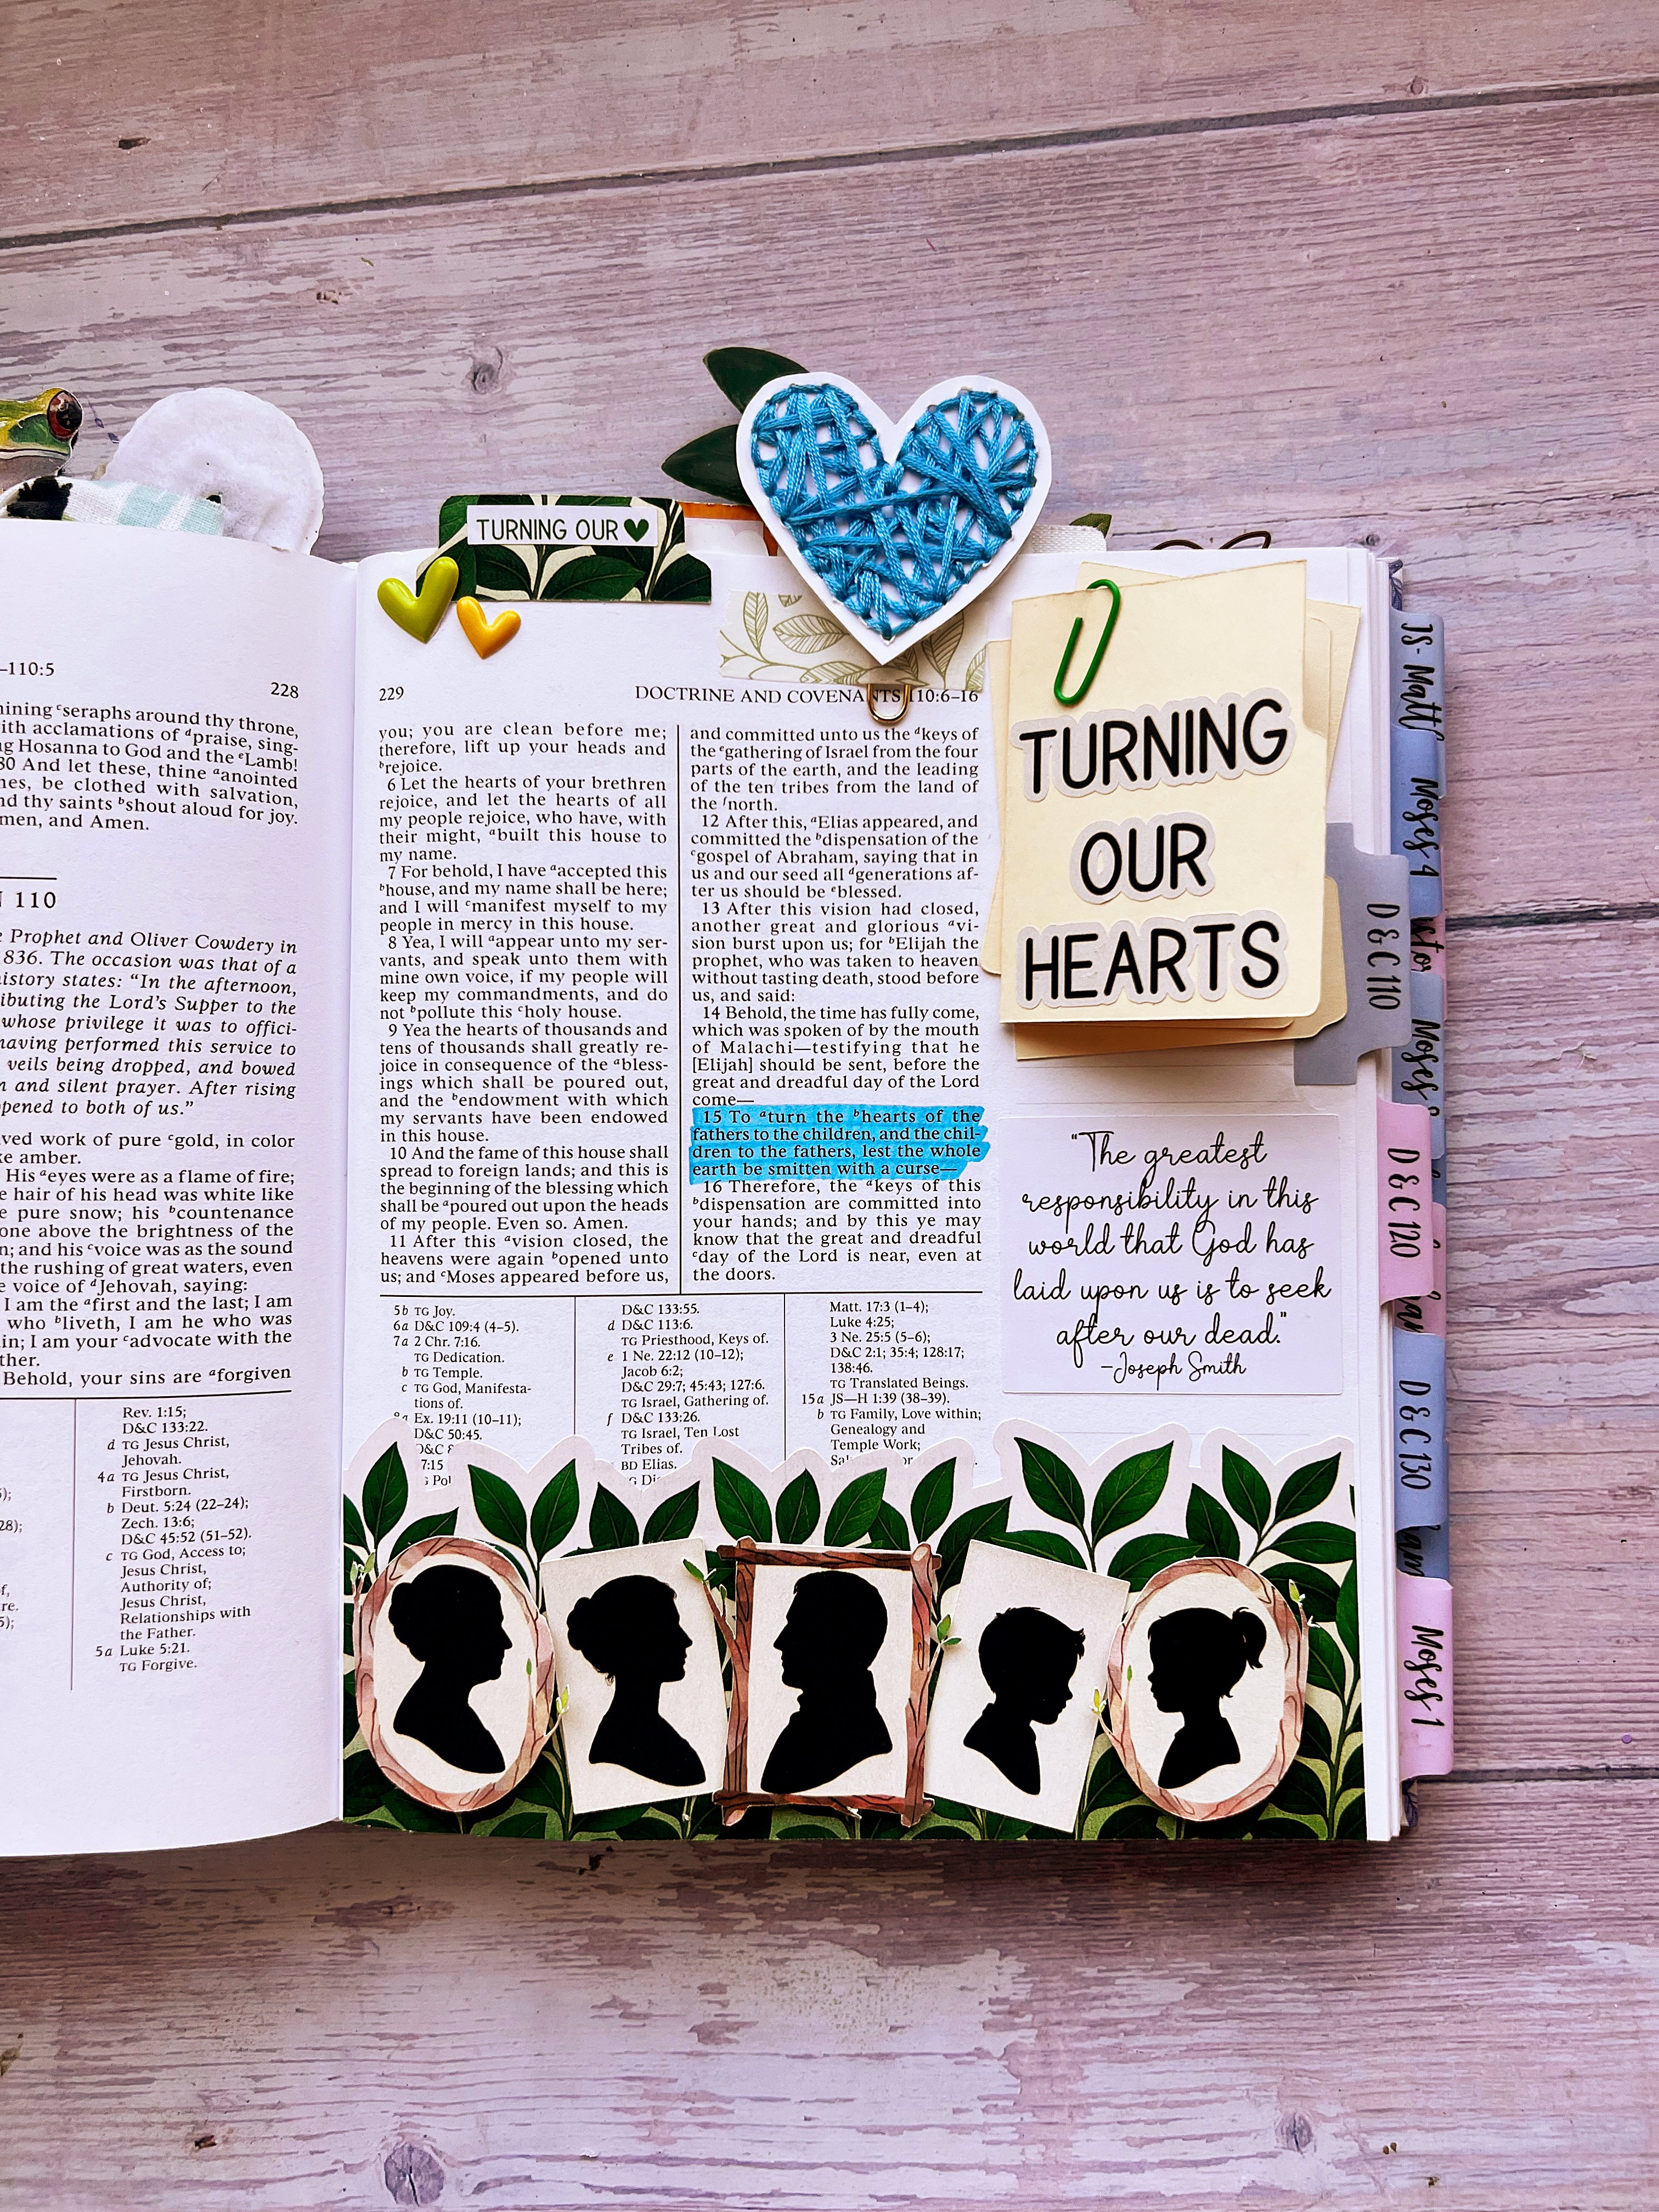 TURNING OUR
–110:5
228
ining ᶜseraphs around thy throne,
ith acclamations of ᵈpraise, sing-
g Hosanna to God and the ᵉLamb!
80 And let these, thine ᵃanointed
nes, be clothed with salvation,
nd thy saints ᵇshout aloud for joy.
men, and Amen.
N 110
e Prophet and Oliver Cowdery in
836. The occasion was that of a
istory states: “In the afternoon,
ibuting the Lord’s Supper to the
whose privilege it was to offici-
having performed this service to
veils being dropped, and bowed
n and silent prayer. After rising
pened to both of us.”
ved work of pure ᶜgold, in color
ke amber.
His ᵃeyes were as a flame of fire;
e hair of his head was white like
e pure snow; his ᵇcountenance
one above the brightness of the
n; and his ᶜvoice was as the sound
the rushing of great waters, even
e voice of ᵈJehovah, saying:
I am the ᵃfirst and the last; I am
who ᵇliveth, I am he who was
in; I am your ᶜadvocate with the
ther.
Behold, your sins are ᵃforgiven
Rev. 1:15;
D&C 133:22.
d TG Jesus Christ,
Jehovah.
4a TG Jesus Christ,
Firstborn.
b Deut. 5:24 (22–24);
Zech. 13:6;
D&C 45:52 (51–52).
c TG God, Access to;
Jesus Christ,
Authority of;
Jesus Christ,
Relationships with
the Father.
5a Luke 5:21.
TG Forgive.
229
DOCTRINE AND COVENANTS 110:6–16
you; you are clean before me;
therefore, lift up your heads and
ᵇrejoice.
6 Let the hearts of your brethren
rejoice, and let the hearts of all
my people rejoice, who have, with
their might, ᵃbuilt this house to
my name.
7 For behold, I have ᵃaccepted this
ᵇhouse, and my name shall be here;
and I will ᶜmanifest myself to my
people in mercy in this house.
8 Yea, I will ᵃappear unto my ser-
vants, and speak unto them with
mine own voice, if my people will
keep my commandments, and do
not ᵇpollute this ᶜholy house.
9 Yea the hearts of thousands and
tens of thousands shall greatly re-
joice in consequence of the ᵃbless-
ings which shall be poured out,
and the ᵇendowment with which
my servants have been endowed
in this house.
10 And the fame of this house shall
spread to foreign lands; and this is
the beginning of the blessing which
shall be ᵃpoured out upon the heads
of my people. Even so. Amen.
11 After this ᵃvision closed, the
heavens were again ᵇopened unto
us; and ᶜMoses appeared before us,
and committed unto us the ᵈkeys of
the ᵉgathering of Israel from the four
parts of the earth, and the leading
of the ten tribes from the land of
the ᶠnorth.
12 After this, ᵃElias appeared, and
committed the ᵇdispensation of the
ᶜgospel of Abraham, saying that in
us and our seed all ᵈgenerations af-
ter us should be ᵉblessed.
13 After this vision had closed,
another great and glorious ᵃvi-
sion burst upon us; for ᵇElijah the
prophet, who was taken to heaven
without tasting death, stood before
us, and said:
14 Behold, the time has fully come,
which was spoken of by the mouth
of Malachi—testifying that he
[Elijah] should be sent, before the
great and dreadful day of the Lord
come—
15 To ᵃturn the ᵇhearts of the
fathers to the children, and the chil-
dren to the fathers, lest the whole
earth be smitten with a curse—
16 Therefore, the ᵃkeys of this
ᵇdispensation are committed into
your hands; and by this ye may
know that the great and dreadful
ᶜday of the Lord is near, even at
the doors.
5b TG Joy.
6a D&C 109:4 (4–5).
7a 2 Chr. 7:16.
TG Dedication.
b TG Temple.
c TG God, Manifesta-
tions of.
8a Ex. 19:11 (10–11);
D&C 50:45.
D&C 8
7:15
D&C 133:55.
d D&C 113:6.
TG Priesthood, Keys of.
e 1 Ne. 22:12 (10–12);
Jacob 6:2;
D&C 29:7; 45:43; 127:6.
TG Israel, Gathering of.
f D&C 133:26.
TG Israel, Ten Lost
Tribes of.
BD Elias.
Matt. 17:3 (1–4);
Luke 4:25;
3 Ne. 25:5 (5–6);
D&C 2:1; 35:4; 128:17;
138:46.
TG Translated Beings.
15a JS—H 1:39 (38–39).
b TG Family, Love within;
Genealogy and
Temple Work;
TURNING
OUR
HEARTS
"The greatest
responsibility in this
world that God has
laid upon us is to seek
after our dead."
-Joseph Smith
JS-Matt
Moses 4
D&C 110
Moses
D&C 120
D&C 130
Moses 1